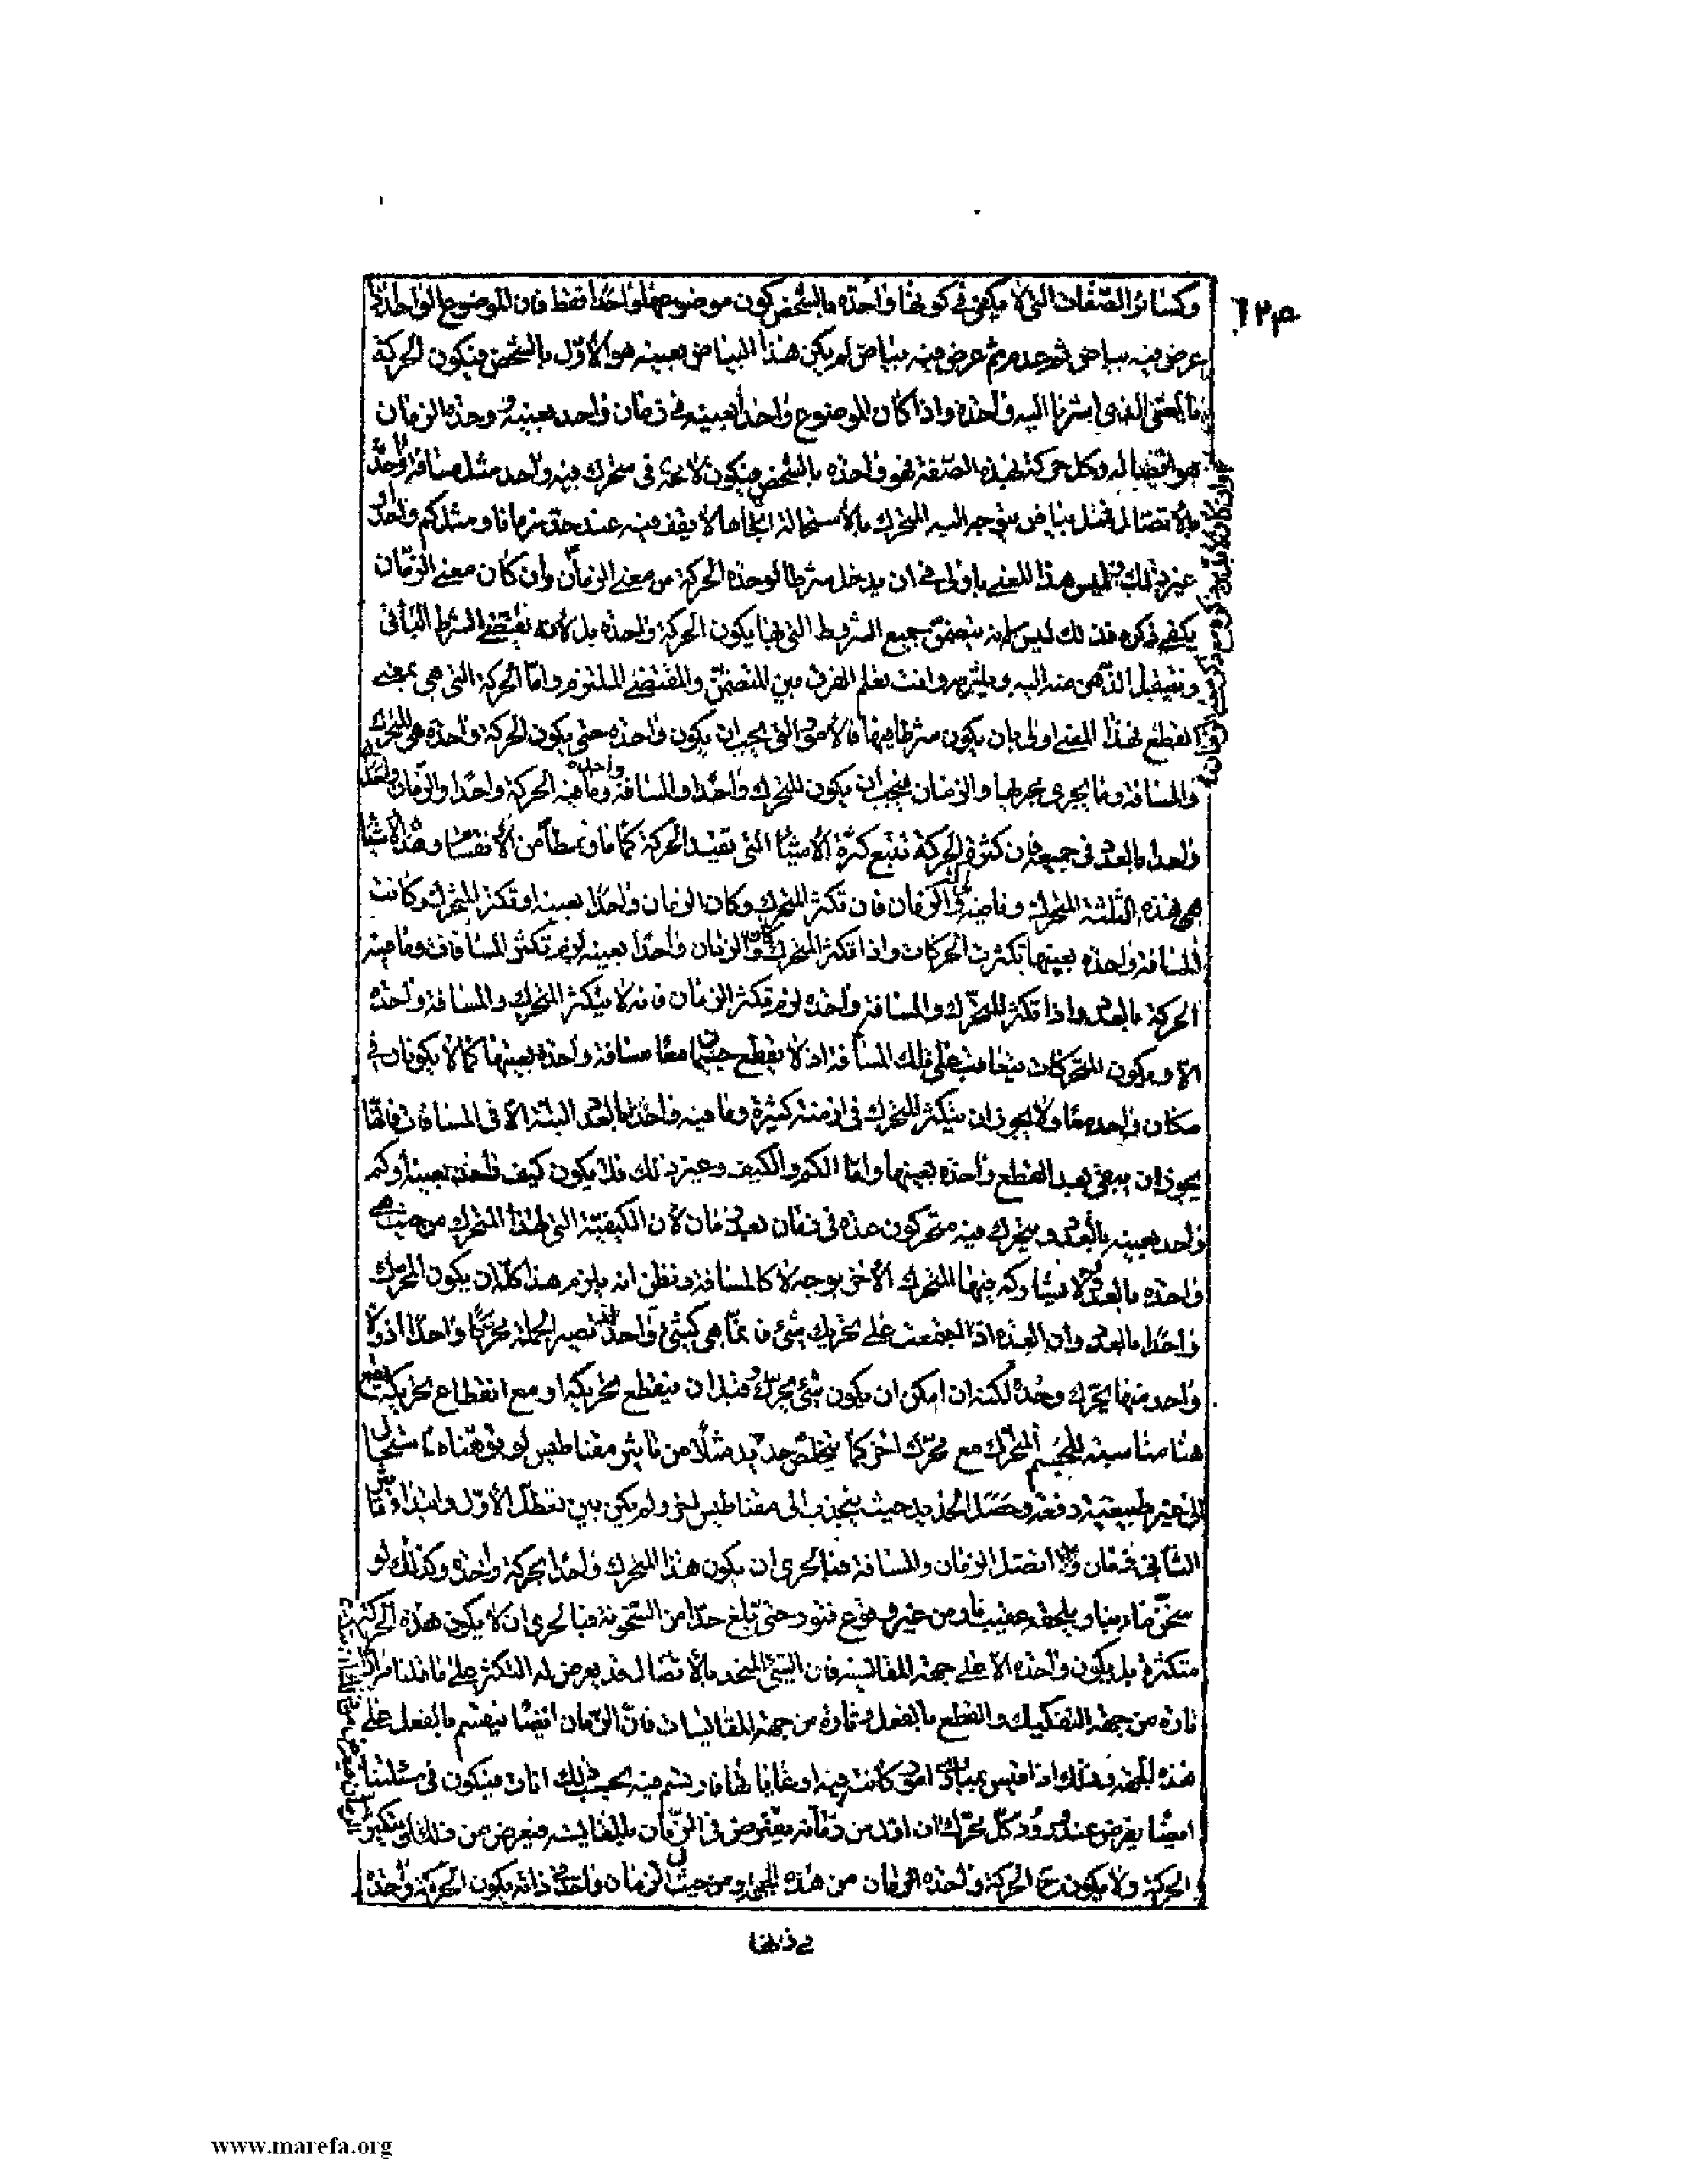 وكسائر الصفات التي لا يكفي في كونها واحدة بالشخص كون موضوعها واحدا فقط فان الموضوع الواحد اذا
عرض فيه بياض ثم عدم ثم عرض فيه بياض لم يكن هذا البياض بعينه هو الأول بالشخص فيكون الحركة
بالمعنى الذي اشرنا اليه واحدة واذا كان الموضوع واحدا بعينه في زمان واحد بعينه وحدة الزمان
هو اتصاله وكل حركة بهذه الصفة فهو واحدة بالشخص فيكون لا محة في متحرك فيه واحد مثل مسافة واحدة
بالاتصال مثل بياض يتوجه اليه المتحرك بالاستحالة لا يقف فيه عند حد زمانا ومثل كم واحد او
غير ذلك فليس هذا المعنى باولى في ان يدخل شرطا لوحدة الحركة من معنى الزمان وان كان معنى الزمان
يكفي ذكره فذلك ليس لانه يتضمن جميع الشروط التي بها يكون الحركة واحدة بل لأنه يقتضي الشرط الثاني
وينتقل الذهن منه اليه ويلتزمه وانت تعلم الفرق بين المتضمن والمقتضي الملتزم واما الحركة التي هي بمعنى
القطع فهذا المعنى اولى بان يكون شرطا فيها فالامور التي يجب ان يكون واحدة حتى يكون الحركة واحدة هي المتحرك
والمسافة وما يجري مجريها والزمان فيجب ان يكون المتحرك واحدا والمسافة وما فيه الحركة واحدا والزمان واحدا
واحدة
واحدا بالعدد في جميعه فان كثرة الحركة تتبع كثرة الأشياء التي تقيد الحركة كما ما وبسطا من الأنقسام وهذه الأشياء
هي هذه الثلثة المتحرك وما فيه والزمان فان تكثر المتحرك وكان الزمان واحدا بعينه او تكثر المتحرك وكانت
المسافة واحدة بعينها تكثرت الحركات واذا تكثر المتحرك وكان الزمان واحدا بعينه لزم تكثر المسافات وما فيه
الحركة بالعدد واذا تكثر المتحرك والمسافة واحدة لزم تكثر الزمان فانه لا يتكثر المتحرك والمسافة واحدة
الا ويكون المتحركات متعاقبة على تلك المسافة اذ لا يقطع جسمان معا مسافة واحدة بعينها كما لا يكونان في
مكان واحد معا ولا يجوز ان يتكثر المتحرك في ازمنة كثيرة وما فيه واحد بالعدد البتة الا في المسافات فانها
يجوز ان يبقى بعد القطع واحدة بعينها واما الكم والكيف وغير ذلك فلا يكون كيف واحد بعينه او كم
واحد بعينه بالعدد ويتحرك فيه متحركون عدة في زمان بعد زمان لأن الكيفية التي لهذا المتحرك من حيث هي
واحدة بالعدد لا يشاركه فيها المتحرك الأخر بوجه لا كالمسافة ونظن انه يلزم هذا كله ان يكون المحرك
واحدا بالعدد وان العدة اذا اجتمعت على تحريك شئ فانما هي كشئ واحد تصير الجملة محركا واحدا اذ ولا
واحد منها يحرك وحده لكنه ان امكن ان يكون شئ يحرك قبل ان ينقطع تحريكه او مع انقطاع تحريكه
هنا مناسبة للجسم المتحرك مع محرك اخر كما يتخلص حديد مثلا من تاثير مغناطيس لو توهمناه استحال
الى غير طبيعته دفعة وحصل الحديد حيث ينجذب الى مغناطيس اخر ولم يكن بين تعطل الأول وابتداء تاثير
الثاني زمان ولا اتصل الزمان والمسافة فبالحرى ان يكون هذا المتحرك واحدا بحركة واحدة وكذلك لو
سخن ماء بنار ويلحقه عقيب نار من غير وقوع فتور حتى بلغ حدا من السخونة فبالحرى ان لا يكون هذه الحركة
متكثرة بل يكون واحدة الا على جهة المقايسة فان الشئ المتحد بالأتصال قد يعرض له التكثر على ما قلنا مرارا
تارة من جهة التفكيك والقطع بالفعل وتارة من جهة المقايسات فان الزمان ايضا ينقسم بالفعل على
هذه الجهة وذلك اذا قيس بمبادى امور كانت فيه او غايات لها فارتسم فيه بحسب ذلك انات فيكون في مسئلتنا
ايضا يفرض عند ورود كل محرك ان ابتداء من زمانه يفترض في الزمان بالمقايسة فيعرض من ذلك ان يتكثر
الحركة ولا يكون ح الحركة واحدة الزمان من هذه الجهة ومن حيث الزمان واحد في ذاته يكون الحركة واحدة
في ذاتها
www.marefa.org